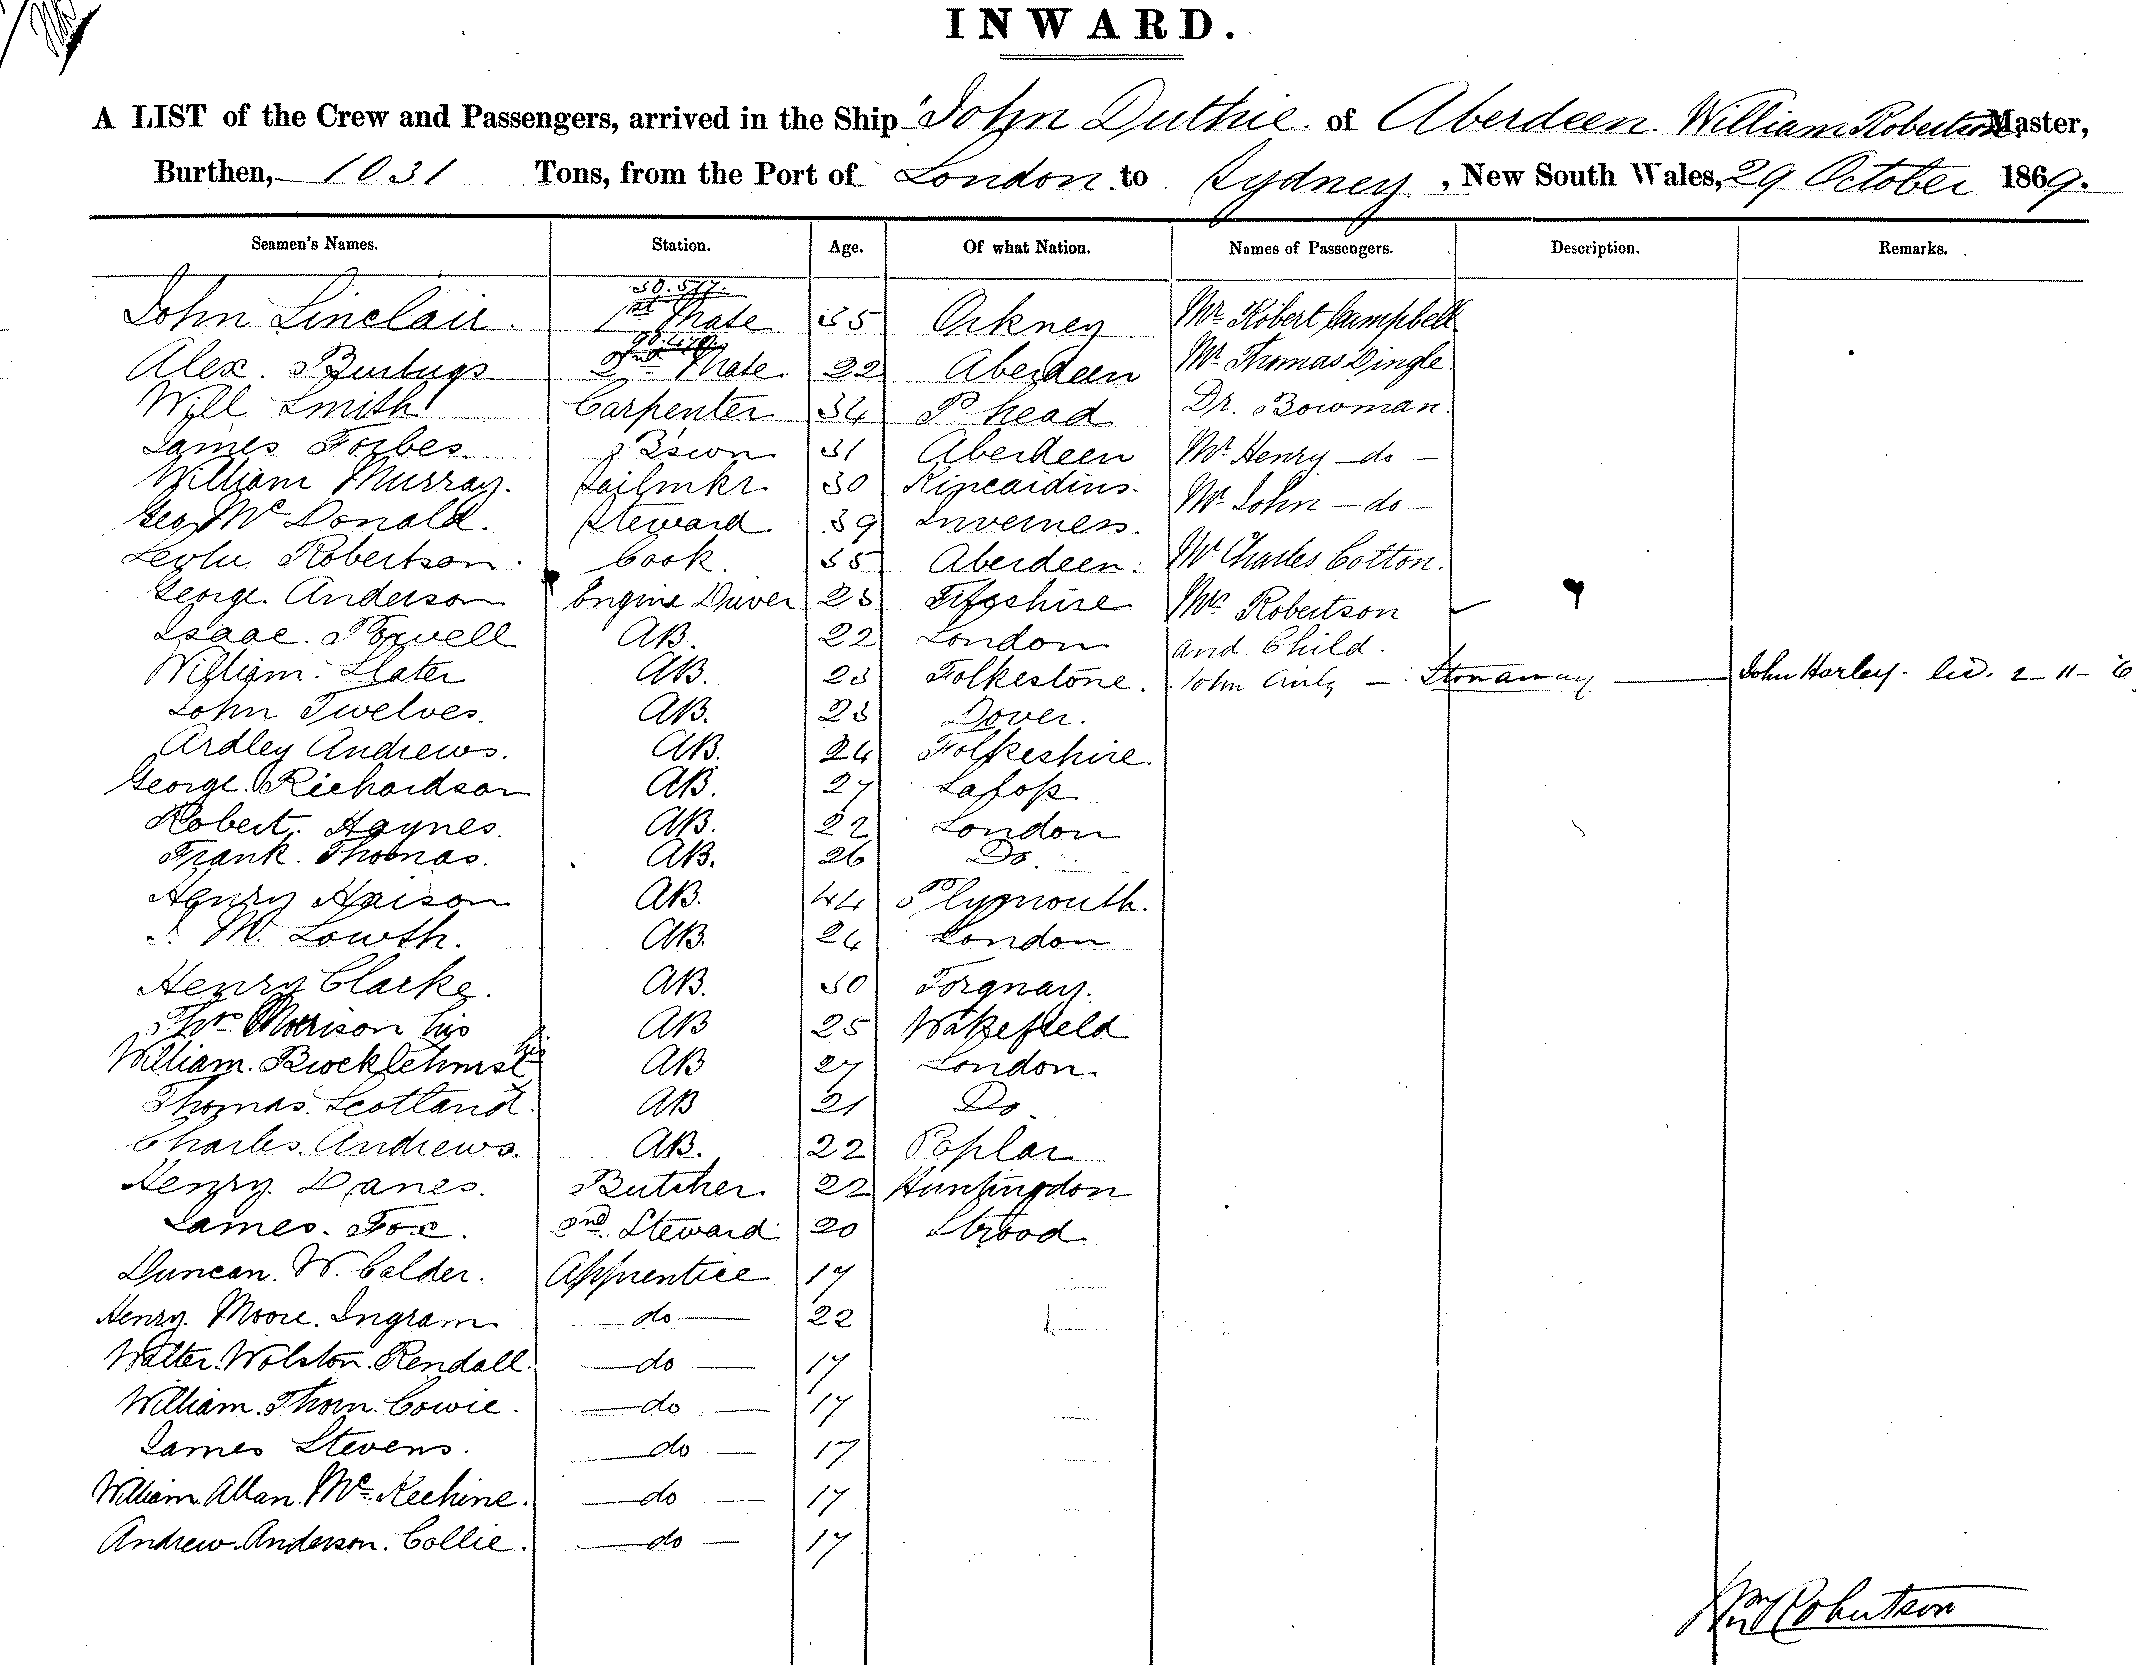 INWARD.
A LIST of the Crew and Passengers, arrived in the Ship John Duthie of Aberdeen. William Robertson Master,
Burthen, 1031 Tons, from the Port of London to Sydney, New South Wales, 29 October 1869.
Seamen's Names. Station. Age. Of what Nation. Names of Passengers. Description. Remarks.
John Sinclair. 1st Mate 35 Orkney Mr Robert Campbell
Alex. 2nd Mate 22 Aberdeen Mr Thomas Dingle
Will Smith Carpenter 34 P head Dr. Bowman.
James Forbes. 31 Aberdeen Mr Henry do
William Murray. Sailmkr 30 Mr John do
Geo Mc Donald. Steward 39 Inverness.
Robertson. Cook. 35 Aberdeen. Mr Charles Cotton.
George Anderson Engine Driver 23 Fifeshire Mrs Robertson
Isaac AB. 22 London and Child.
William Slater AB. 23 Folkestone. John Stonaway John Harley. 2-11-6
John Twelves. AB. 23 Dover.
Ardley Andrews. AB. 24 Folkeshire.
George Richardson AB. 27
Robert Haynes. AB. 22 London
Frank Thomas. AB. 26 Do.
Henry AB. 44 Plymouth.
M. Lowth. AB. 24 London
Henry Clarke. AB. 30 Torquay.
Thos Morrison his AB 25 Wakefield
William. Brocklehurst AB 27 London.
Thomas. Scotland AB 21 Do.
Charles. Andrews. AB. 22 Poplar
Henry. Danes. Butcher. 22 Huntingdon
James. Fox. 2nd Steward 20 Strood
Duncan. W. Calder. Apprentice 17
Henry. Moore. Ingram do 22
Walter. Wolston. Rendall. do 17
William. Thom. Cowie. do 17
James Stevens. do 17
William. Allan. Mc Kechine. do 17
Andrew. Anderson. Collie. do 17
Wm Robertson